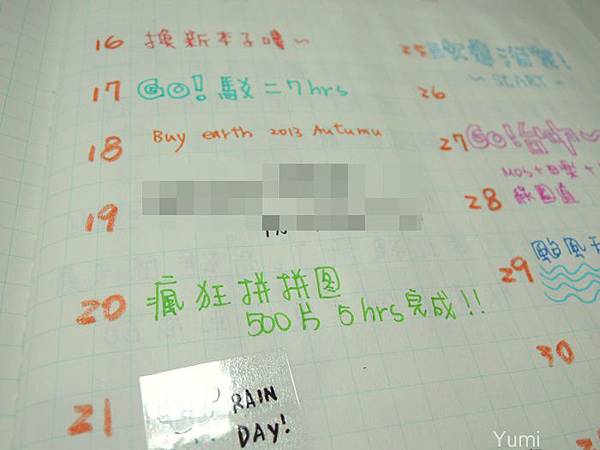 16 換新本子嘍~
17 GO! 駁二 7hrs
18 Buy earth 2013 Autumu
19
20 瘋狂拼拼图
500片 5hrs完成!!
21 RAIN
DAY!
25
~ START ~
26
27 GO!台中~
28
29 颱風天
30
Yumi